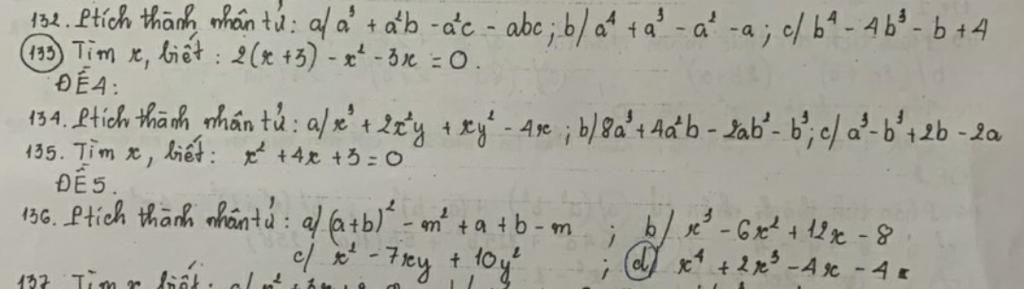 132. Ptích thành nhân tử: a/ a³ + a²b - a²c - abc; b/ a⁴ + a³ - a² - a; c/ b⁴ - 4b³ - b + 4
133 Tìm x, biết: 2(x+3) - x² - 3x = 0.
ĐỀ 4:
134. Ptích thành nhân tử: a/ x³ + 2x²y + xy² - 4x; b/ 8a³ + 4a²b - 2ab² - b³; c/ a³ - b³ + 2b - 2a
135. Tìm x, biết: x² + 4x + 3 = 0
ĐỀ 5.
136. Ptích thành nhân tử: a/ (a+b)² - m² + a + b - m ; b/ x³ - 6x² + 12x - 8
c/ x² - 7xy + 10y² ; d/ x⁴ + 2x³ - 4x - 4
137. Tìm x, biết: a/